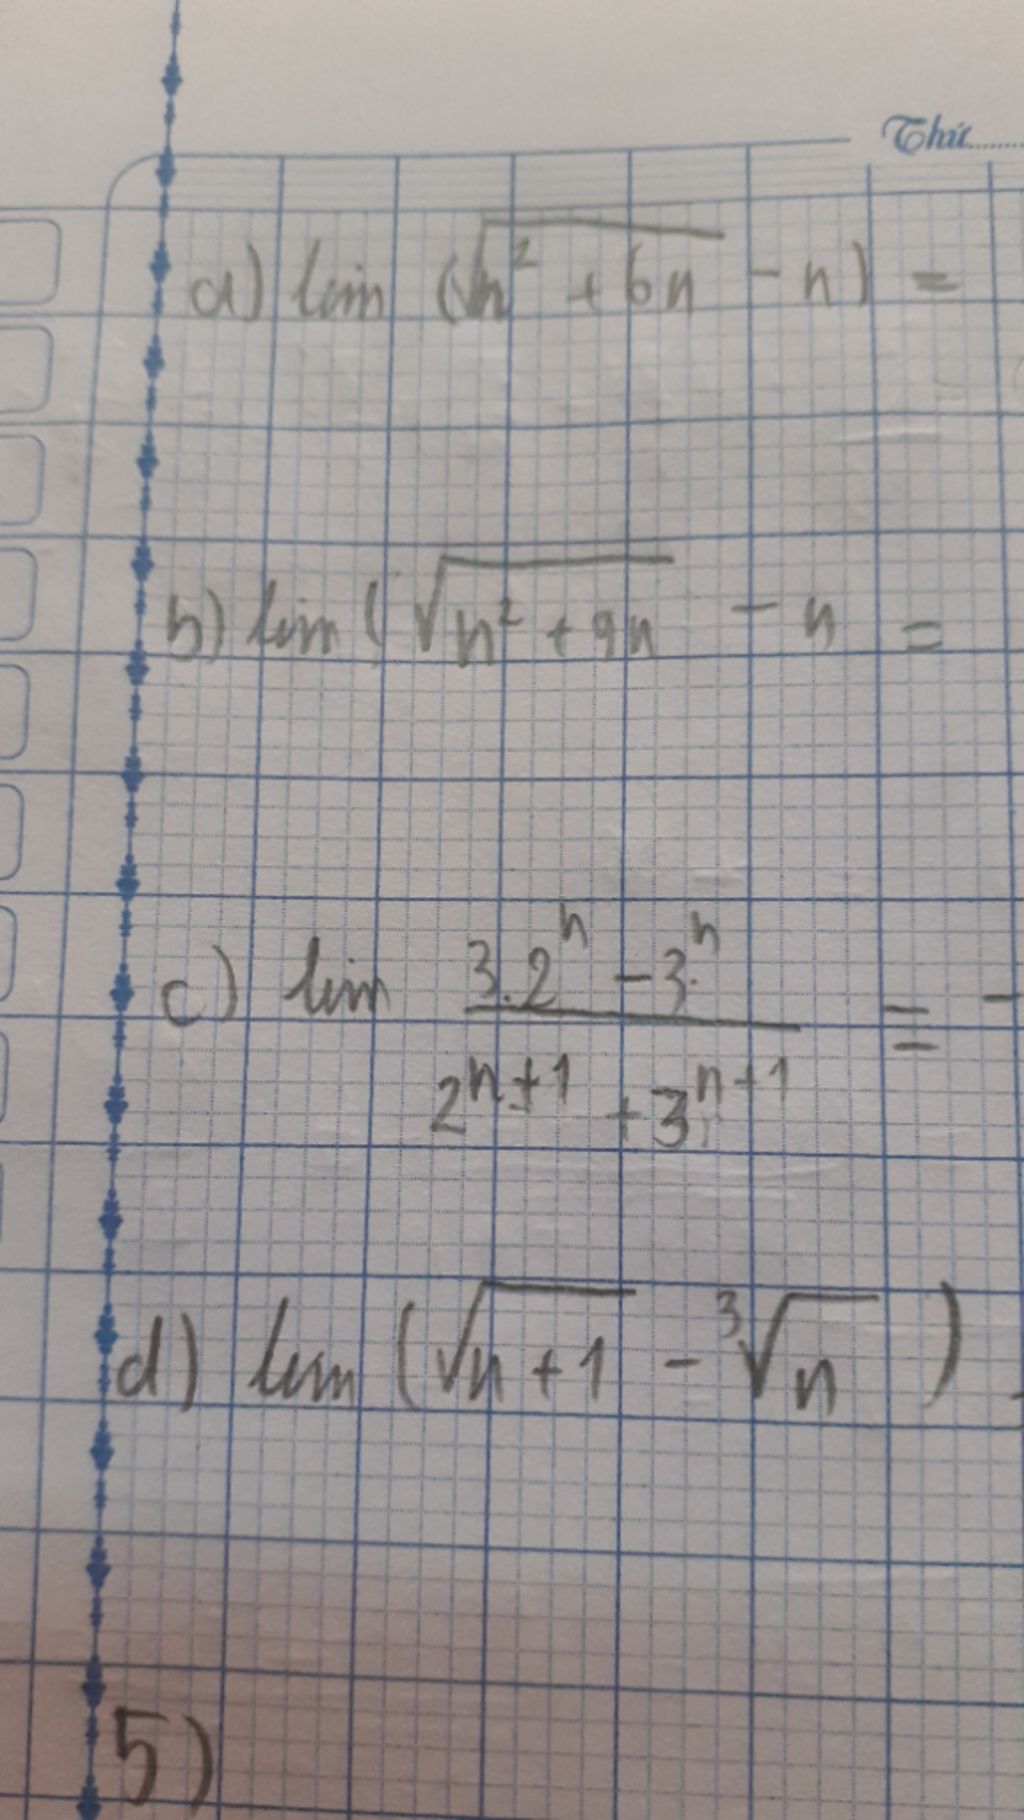 Thứ
a) lim (√n² + 6n - n) =
b) lim (√n² + 9n - n =
c) lim 3.2ⁿ - 3ⁿ = -
2ⁿ⁺¹ + 3ⁿ⁺¹
d) lim (√n + 1 - ³√n)
5)